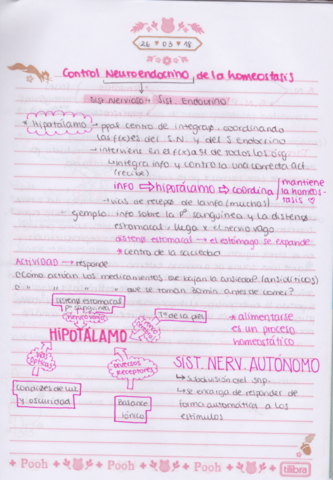 26 · 03 · 18
Control Neuroendocrino, de la homeostasis
Sist. Nervioso + Sist. Endocrino
* Hipotálamo → ppal centro de integrac, coordinando
las fxiones del S.N y del S Endocrino
→ interviene en el fxion/ de todos los órg
↳ integra info y controla una correcta act.
(recibe)
info ⇒ hipotálamo ⇒ coordina / mantiene
la homeos-
tasis ♡
→ vías de recepc de la info (muchas)
- ejemplo: info sobre la P° sanguínea y la distens
estomacal: llega x el nervio vago
distens estomacal → el estómago se expande
* centro de la saciedad
ACTIVIDAD → responde
① Cómo actúan los medicamentos que bajan la ansiedad? (ansiolíticos)
② " " " " que se toman 30min antes de comer?
distens estomacal
P° sanguínea
nervio vago
T° de la piel
* alimentarse
es un proceso
homeostático
HIPOTÁLAMO
vías
ópticas
Condiciones de luz
y oscuridad
diversos
receptores
Balance
iónico
SIST. NERV. AUTÓNOMO
↳ subdivisión del snp.
↳ se encarga de responder de
forma automática a los
estímulos
Pooh Pooh Pooh Pooh
tilibra